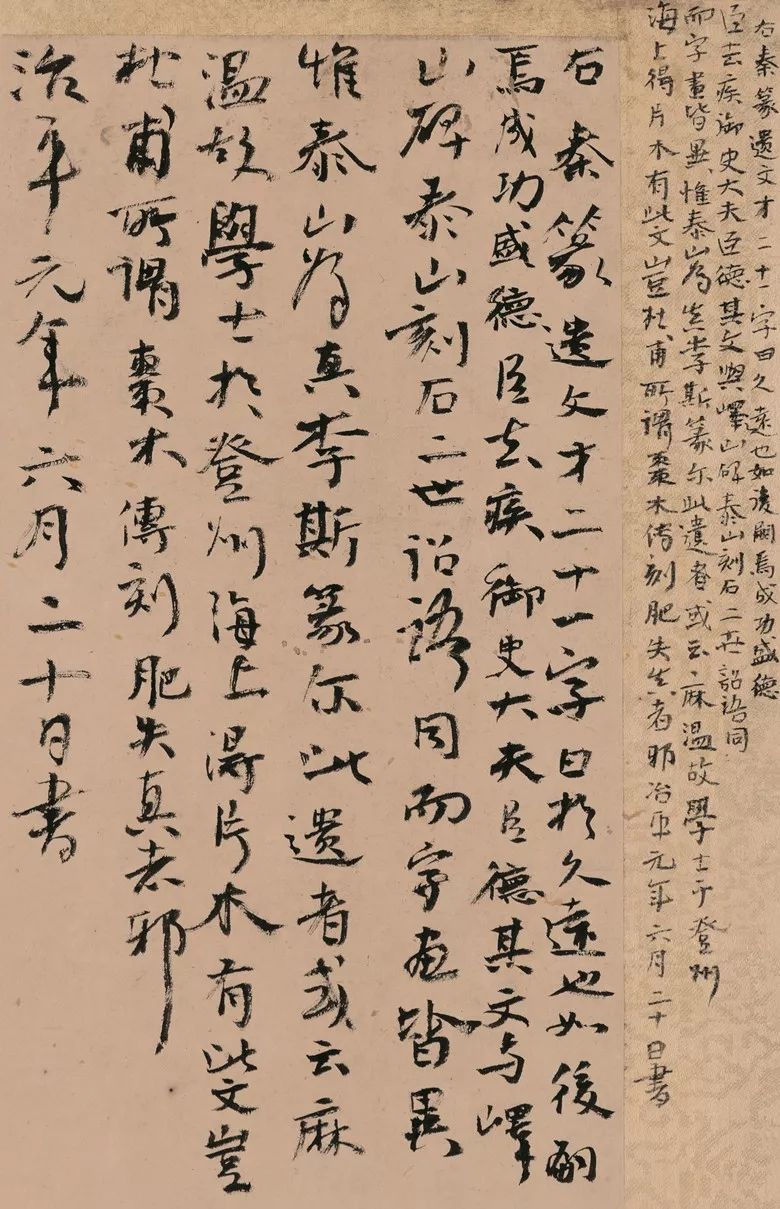 右秦篆遺文才二十一字曰久遠也如後嗣焉成功盛德
臣去疾御史大夫臣德其文與嶧山碑泰山刻石二世詔語同
而字畫皆異惟泰山為真李斯篆尔此遺者或云麻溫故學士于登州
海上得片木有此文豈杜甫所謂棗木傳刻肥失真者邪治平元年六月二十日書
右秦篆遺文才二十一字曰於久遠也如後嗣
焉成功盛德臣去疾御史大夫臣德其文与嶧
山碑泰山刻石二世詔語同而字画皆異
惟泰山為真李斯篆尔此遺者或云麻
溫故學士於登州海上得片木有此文豈
杜甫所謂棗木傳刻肥失真者邪
治平元年六月二十日書